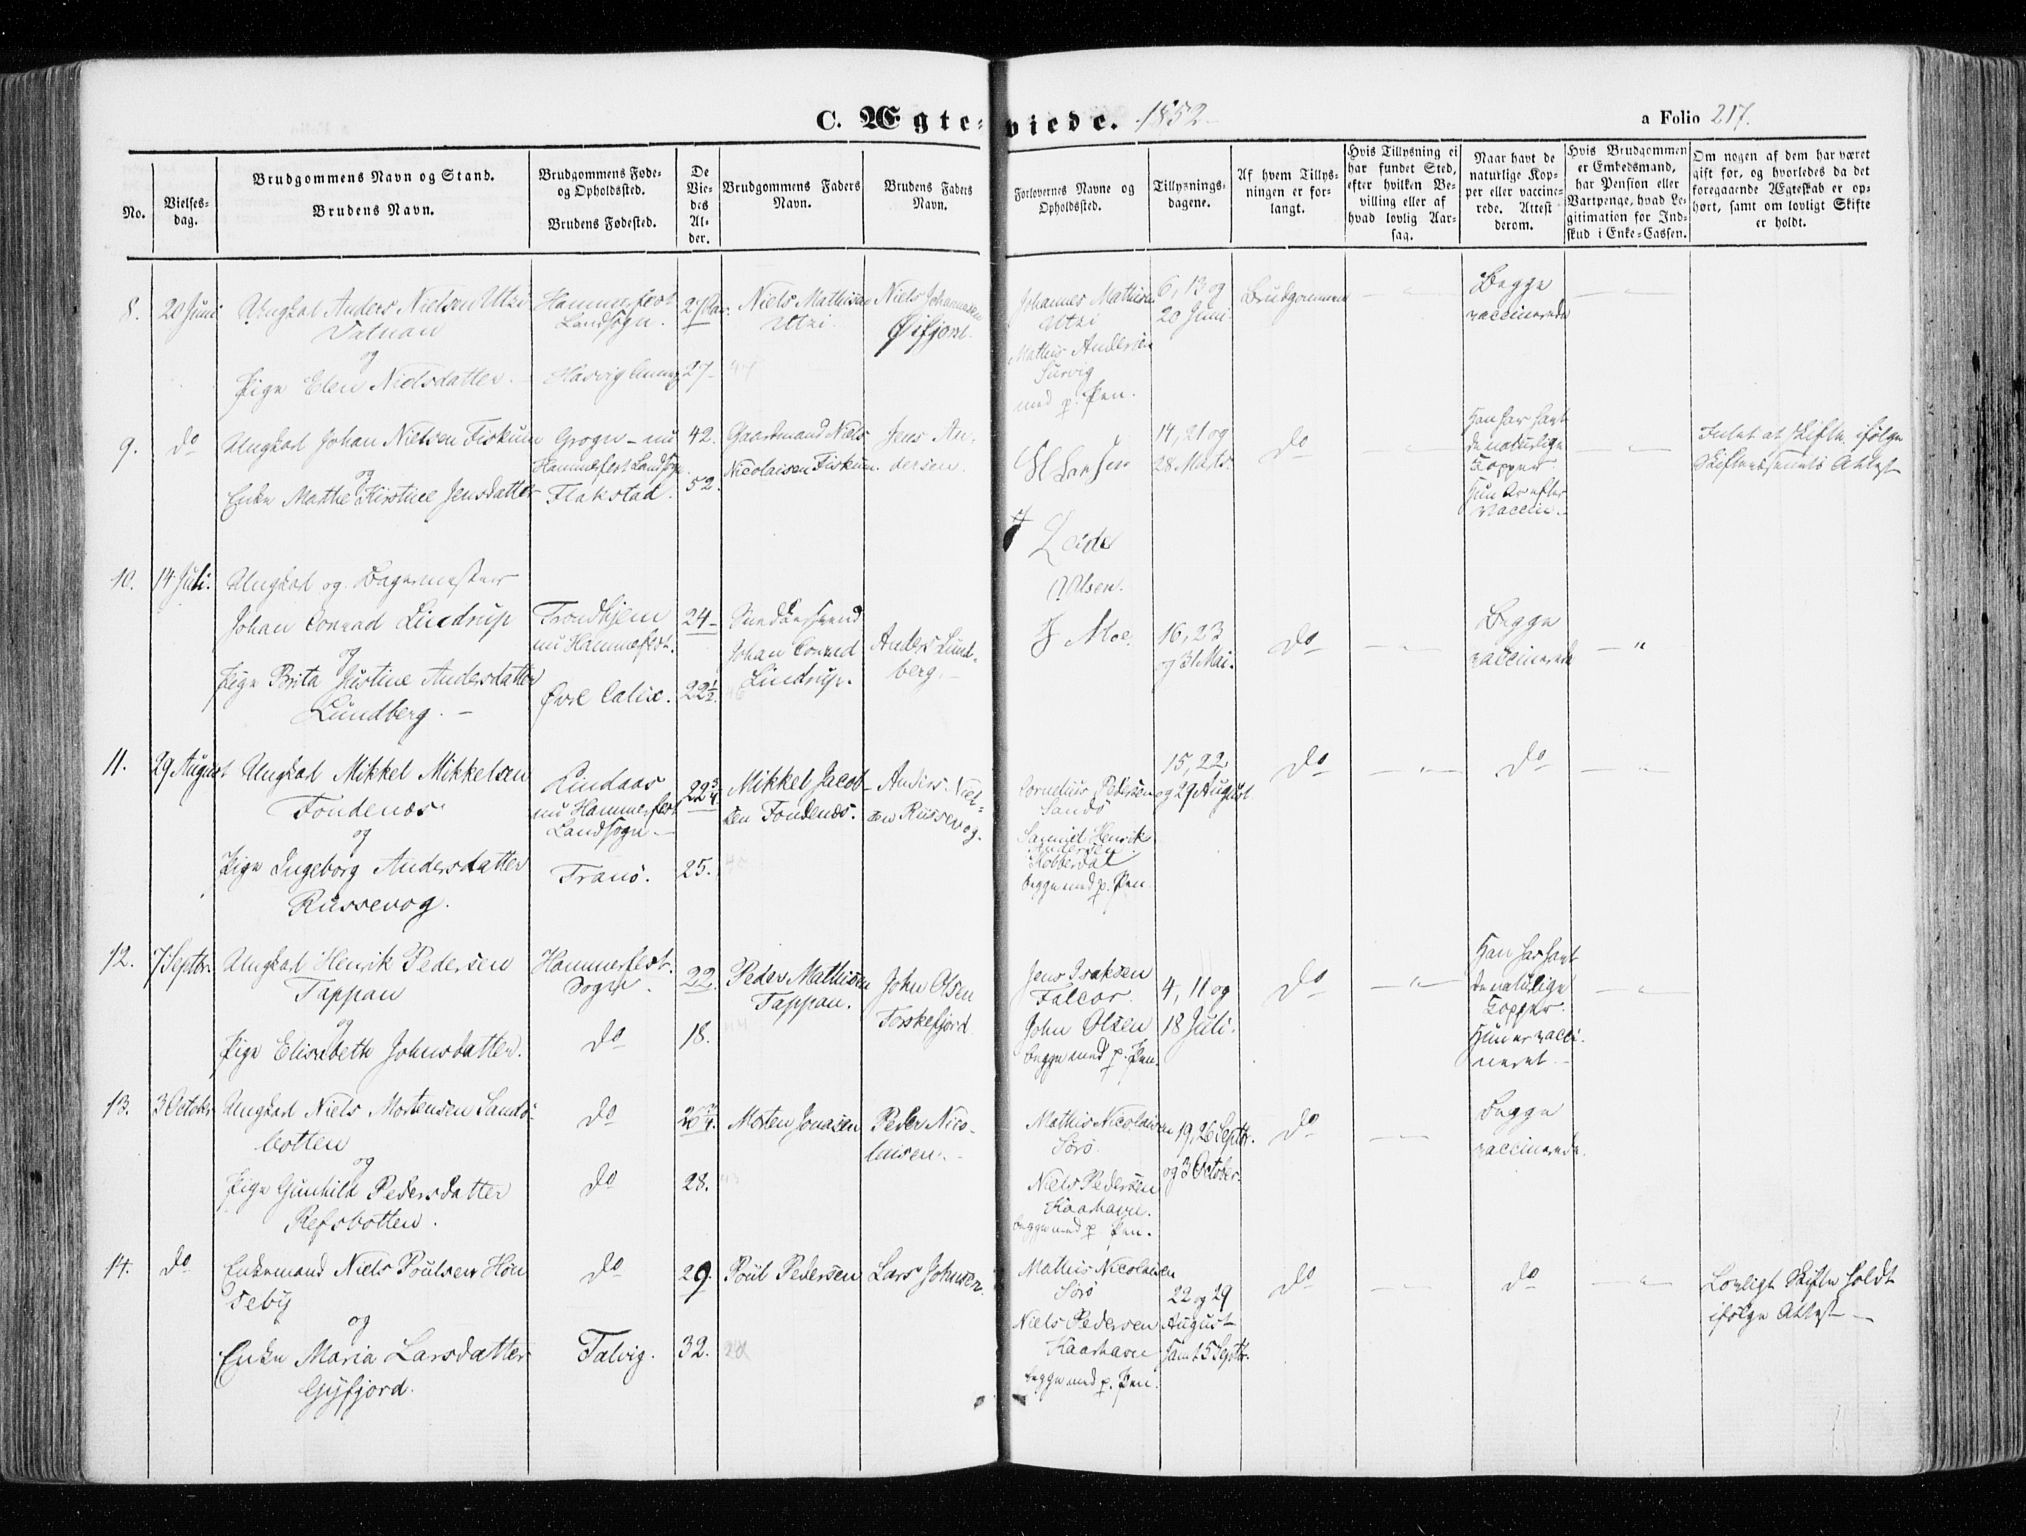 C. Ægte-viede. 1852
a Folio 217.
No.
Vielses-
dag.
Brudgommens Navn og Stand.
Brudens Navn.
Brudgommens Føde-
og Opholdssted.
Brudens Fødested.
De
Vie-
des
Al-
der.
Brudgommens Faders
Navn.
Brudens Faders
Navn.
Forlovernes Navne og
Opholdssted.
Tillysnings-
dagene.
Af hvem Tillys-
ningen er for-
langt.
Hvis Tillysning ei
har fundet Sted,
efter hvilken Be-
villing eller af
hvad lovlig Aar-
sag.
Naar havt de
naturlige Kop-
per eller vaccine-
rede. Attest
derom.
Hvis Brudgommen
er Embedsmand,
har Pension eller
Vartpenge, hvad Le-
gitimation for Ind-
skud i Enke-Cassen.
Om nogen af dem har været
gift før, og hvorledes da det
foregaaende Ægteskab er op-
hørt, samt om lovligt Skifte
er holdt.
8. 20 Juni
Ungkal Anders Nielsen Utzi
Vatnan
og
Pige Elen Nielsdatter
Hammerfest
Landsogn.
Hasvig
27 Aar
27
Niels Mathisen
Utzi
Niels Johannesen
Øifjord.
Johannes Mathisen
Utzi
Mathis Andersen
Survig
med p. Pen.
6, 13 og
20 Juni
Brudgommen
Begge
vaccinerede
9. do
Ungkal Johan Nielsen Fiskum
og
Enke Marthe Kirstine Jensdatter
Grogn - nu
Hammerfest Landsogn.
Flakstad.
42.
52.
Gaardmand Niels
Nicolaisen Fiskum.
Jens An-
dersen.
14, 21 og
28 Marts
do
Han har havt
de naturlige
Kopper
Hun er efter
vaccin.
Intet at skifte ifølge
Skifterettens Attest
10. 14 Juli.
Ungkal og Bagermester
Johan Conrad Lindrup
og
Pige Brita Justine Andersdatter
Lundberg.
Trondhjem
nu Hammerfest.
Øvre Calix.
24
22½
Snedkersvend
Johan Conrad
Lindrup.
Anders Lund-
berg.
Olsen.
J Moe.
16, 23
og 31 Mai.
do
Begge
vaccinerede
11. 29 August
Ungkal Mikkel Mikkelsen
Fondenæs
og
Pige Ingeborg Andersdatter
Russevog.
Lindaas
nu Hammerfest
Landsogn
Tranö.
22¾
25.
Mikkel Jacob-
sen Fondenæs.
Anders Niel-
sen Russevog.
Cornelius Pedersen
Sandö
Samuel Henrik
Andersen
Kobberdal
begge med p. Pen
15, 22
og 29 August
do
do
12. 7 Septbr.
Ungkarl Henrik Pedersen
Tappan
og
Pige Elisebeth Johnsdatter.
Hammerfest
Sogn.
do
22
18.
Peder Mathisen
Tappan.
John Olsen
Torskefjord
Jens Isaksen
Falcor.
John Olsen
begge med p. Pen.
4, 11 og
18 Juli.
do
Han har havt
de naturlige
Kopper.
Hun er vacci-
neret
13. 3 October
Ungkarl Niels Mortensen Sandö-
botten
og
Pige Gunhild Pedersdatter
Refsbotten.
do
do
28.
Morten Jonasen
Peder Nico-
laisen.
Mathis Nicolaisen
Sörö.
Niels Pedersen
Kaarhavn.
begge med p. Pen.
19, 26 Septbr.
og 3 October.
do
Begge
vaccinerede
14. do
Enkemand Niels Poulsen Hön
seby
og
Enke Maria Larsdatter
Gyfjord.
do
Talvig.
29.
32.
Poul Pedersen
Lars Johnsen.
Mathis Nicolaisen
Sörö
Niels Pedersen
Kaarhavn
begge med p. Pen.
22 og 29
August
samt 5 Septbr.
do
do
Lovligt Skifte holdt
ifølge Attest